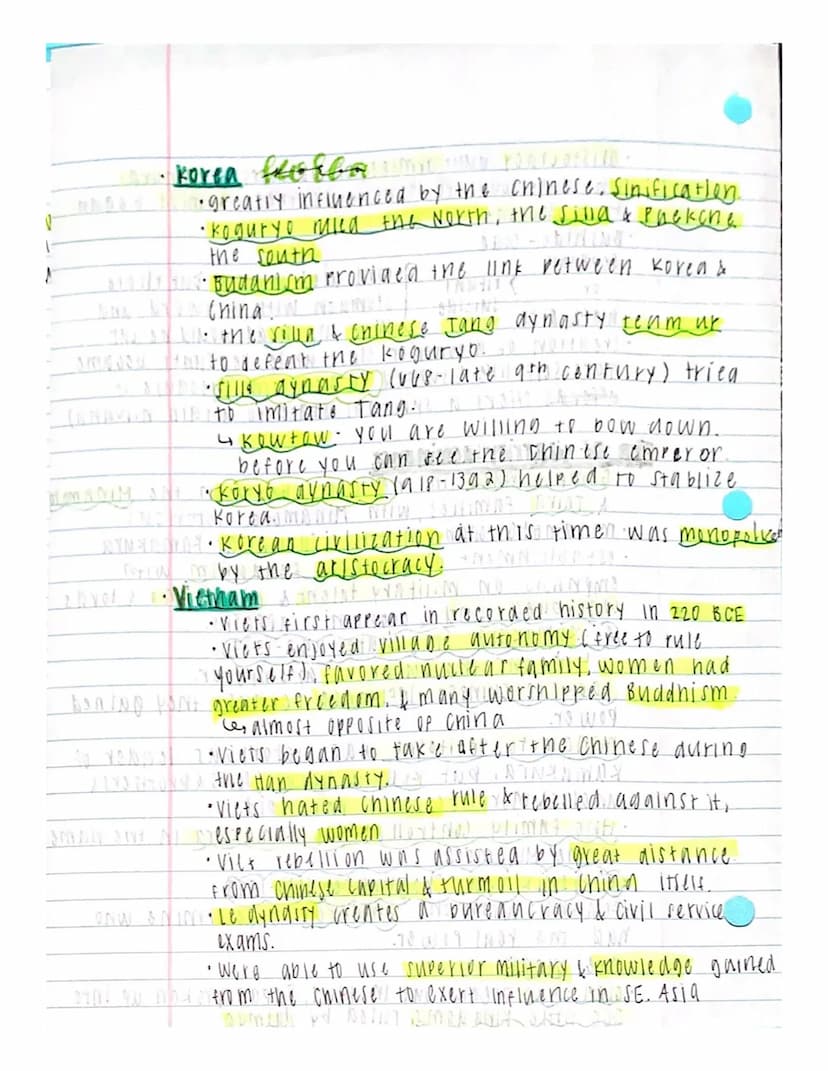 · Korea
· greatly influenced by the Chinese. Sinification
· Koguryo ruled the North, the Silla & Paekche
the South
· Buddhism provided the link between Korea &
China.
· the Silla & Chinese Tang dynasty team up
to defeat the Koguryo.
· Silla dynasty (668-late 9th century) tried
to imitate Tang.
↳ Kowtow- you are willing to bow down.
before you can see the Chinese emperor.
· Koryo dynasty (918-1392) helped to stablize
Korea.
· Korean civilization at this time was
by the aristocracy.
· Vietnam
· Viets first appear in recorded history in 220 BCE
· Viets enjoyed village autonomy (free to rule
yourself), favored nuclear family, women had
greater freedom, & many worshipped Buddhism.
↳ almost opposite of China
· Viets began to take after the Chinese during
the Han dynasty.
· Viets hated Chinese rule & rebelled against it,
especially women
· Viet rebellion was assisted by great distance
from Chinese capital & turmoil in China itself.
· Le dynasty creates a bureaucracy & civil service
exams.
· Were able to use superior military & knowledge gained
from the Chinese to exert influence in SE. Asia